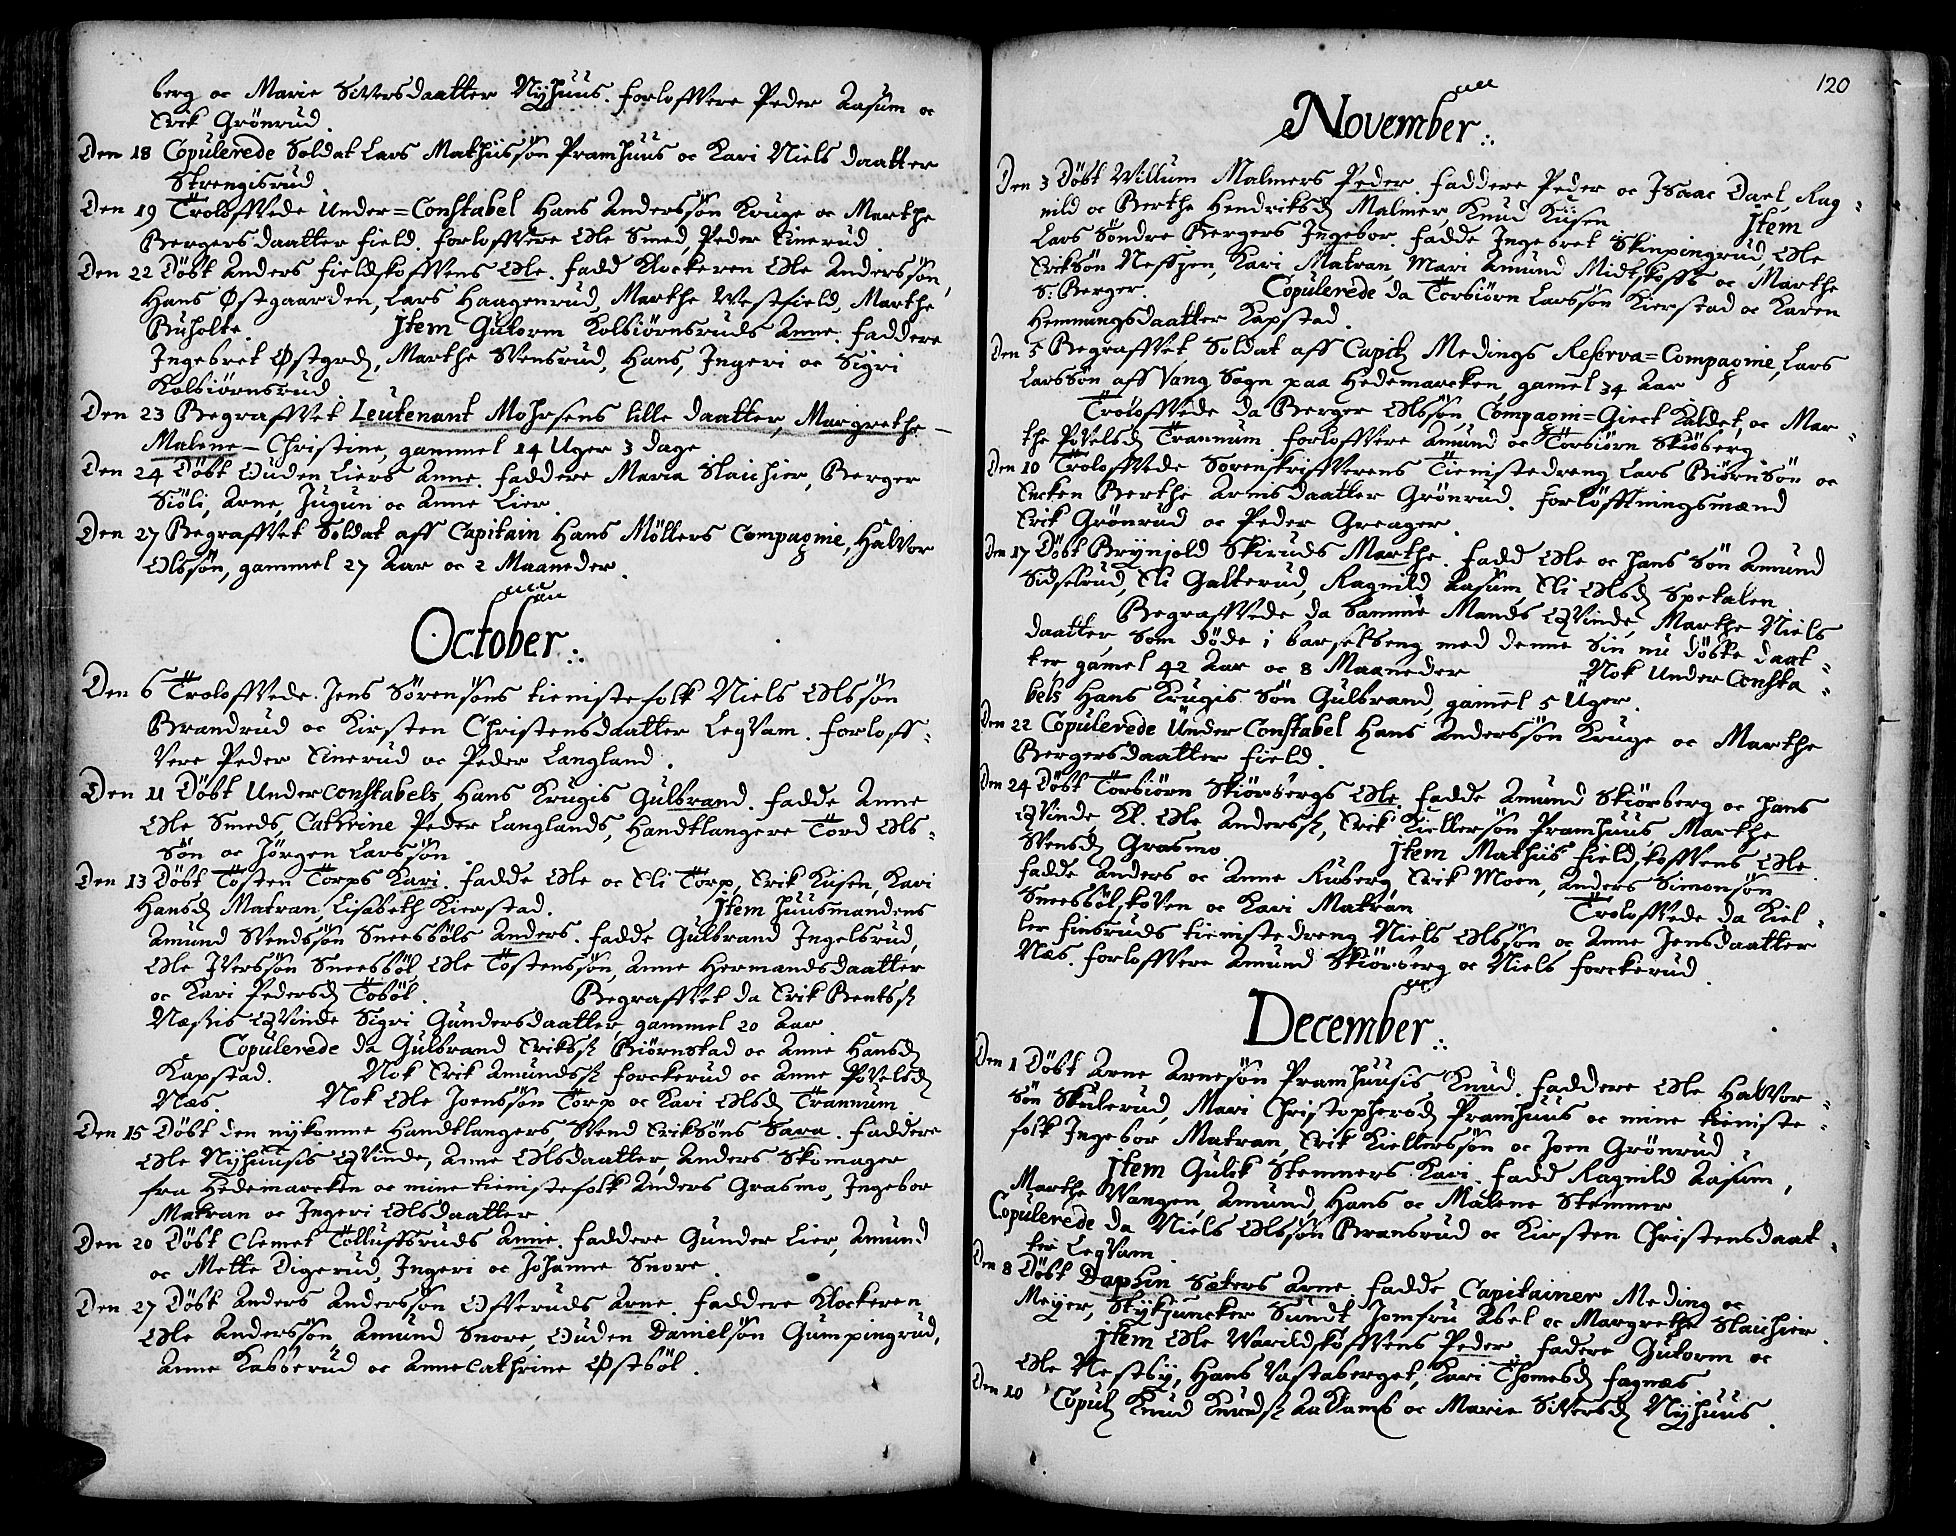 berg oc Marie Siversdaatter Nyhuus. forloffvere Peder Aasum oc
Erik Grönrud.
Den 18 Copulerede Soldat Lars Mathiissön Pramhuus oc Kari Niels daatter
Strengisrud
Den 19 Troloffvede Under=Constabel Hans Anderssön Kruge oc Marthe
Bergersdaatter field. forloffvere Ole Smed, Peder Einerud.
Den 22 Döbt Anders fieldskoffvens Ole. fadd Klockeren Ole Anderssön,
Hans Østgaarden, Lars Haagenrud, Marthe Westfield, Marthe
Buholte. Jtem Gutorm Kolbiörnsruds Anne. faddere
Ingebret Østgrd, Marthe Svensrud, Hans, Ingeri oc Sigri
Kolbiörnsrud
Den 23 Begraffvet Leutenant Mohrsens lille daatter, Margrethe-
Malene-Christine, gammel 14 Uger 3 dage
Den 24 Döbt Ouden Liers Anne. faddere Maria Slaichier, Berger
Siöli, Arne, Jugun oc Anne Lier.
Den 27 Begraffvet Soldat aff Capitain Hans Möllers Compagnie, Halvor
Olssön, gammel 27 Aar oc 2 Maaneder.
October
Den 6 Troloffvede Jens Sörensöns tienistefolk Niels Olssön
Brandrud oc Kirsten Christensdaatter Legvam. forloff-
vere Peder Einerud oc Peder Langland.
Den 11 Döbt Underconstabels Hans Krugis Gulbrand. fadde Anne
Ole Smeds, Cathrine Peder Langlands, Handtlangere Tord Ols-
sön oc Jörgen Larssön
Den 13 Döbt Tösten Torps Kari. fadde Ole oc Eli Torp, Erik Kiisen, Kari
Hansd Matran, Lisabeth Kierstad. Jtem Huusmandens
Amund Svendssön Sneesböls Anders. fadde Gulbrand Ingelsrud,
Ole Iverssön Sneesböl Ole Töstenssön, Anne Hermandsdaatter
oc Kari Pedersd Toböl. Begraffvet da Erik Bentss
Næssis Qvinde Sigri Gundersdaatter, gammel 20 Aar
Copulerede da Gulbrand Erikss Biörnstad oc Anne Hansd
Kapstad. Nok Erik Amundss forckerud oc Anne Povelsd
Næs. Nok Ole Joenssön Torp oc Kari Olsd Trannum
Den 15 Döbt den nykomne Handtlangers, Svend Eriksöns Sara. faddere
Ole Nyhuusis Qvinde, Anne Olsdaatter, Anders Skomager
fra Hedemarcken oc mine tienistefolk Anders Grasmo, Ingebor
Matran oc Ingeri Olsdaatter
Den 20 Döbt Clemet Tolluffsruds Anne. faddere Gunder Lier, Amund
oc Mette Digerud, Ingeri oc Johanne Snore
Den 27 Döbt Anders Anderssön Offveruds Arne. faddere Klockeren
Ole Anderssön Amund Snore, Ouden Danielsön Gumpingrud,
Anne Kasöerud oc Annecathrine Østböl.
120
November
Den 3 Döbt Willum Malmers Peder. faddere Peder oc Isaac Dael, Rag-
nild oc Berthe Hendriksd Malmer Knud Kiisen Jtem
Lars Söndre Bergers Ingebor. fadde Ingebret Skinpingrud, Ole
Eriksön Nessjen, Kari Matran, Mari Amund Midtskoffs oc Marthe
S. Berger. Copulerede da Torbiörn Larssön Kierstad oc Karen
Hemmingsdaatter Kapstad.
Den 5 Begraffvet Soldat aff Capit Medings Reserva=Compagnie, Lars
Larssön aff Vang Sogn paa Hedemarcken, gamel 34 Aar
Troloffvede da Berger Olssön, Compagni=Giect kaldet, oc Mar-
the Povelsd Trannum forloffvere Amund oc Torbiörn Skiöberg
Den 10 Troloffvede Sorenskriffverens Tienistedreng Lars Biörnsön oc
Encken Berthe Arnisdaatter Grönrud. forlöfftningsmænd
Erik Grönrud oc Peder Greager.
Den 17 Döbt Brynjold Skiruds Marthe. fadd Ole oc hans sön Amund
Sidselrud, Eli Galterud, Ragnild Aasum, Eli Olsd Spetalen
Begraffvede da Samme Mands Qvinde, Marthe Niels
daatter, som döde i barselseng med denne sin nu döbte daat-
ter, gamel 42 Aar oc 8 Maaneder Nok Under Consta-
bels Hans Krugis Sön Gulbrand, gamel 5 Uger.
Den 22 Copulerede Under Constabel Hans Anderssön Kruge oc Marthe
Bergersdaatter field.
Den 24 Döbt Torbiörn Skiörbergs Ole. fadde Amund Skiörberg oc hans
Qvinde Kl. Ole Anderss, Erik Kiellersön Pramhuus, Marthe
Svensd Grasmo Jtem Mathiis fieldskoffvens Ole.
fadde Anders oc Anne Ruberg, Erik Moen, Anders Simonsön
Sneesbölskoven oc Kari Matran Troloffvede da Kiel-
ler finsruds tienistedreng Niels Olssön oc Anne Jensdaatter
Næs. forloffvere Amund Skiörberg oc Niels forckerud.
December
Den 1 Döbt Arne Arnesön Pramhuusis Knud. faddere Ole Halvor-
sön Skulerud, Mari Christophersd Pramhuus oc mine tieniste-
folk Ingebor Matran, Erik Kiellerssön oc Joen Grönrud
Jtem Gulik Stemners Kari. fadd Ragnild Aasum,
Marthe Wangen, Amund, Hans oc Malene Stemner
Copulerede da Niels Olssön Bransrud oc Kirsten Christensdaat-
ter Legvam
Den 8 Döbt Daphin Sæters Arne. fadde Capitainer Meding oc
Meyer, Stykjuncker Sundt Jomfru Abel oc Margrethe Slaichier.
Jtem Ole Varildskoffvens Peder. fadere Gutorm oc
Ole Nestby, Hans Vastaberget, Kari Thomesd fagnæs
Den 10 Copul Knud Knuds Aakams oc Marie Siversd Nyhuus.